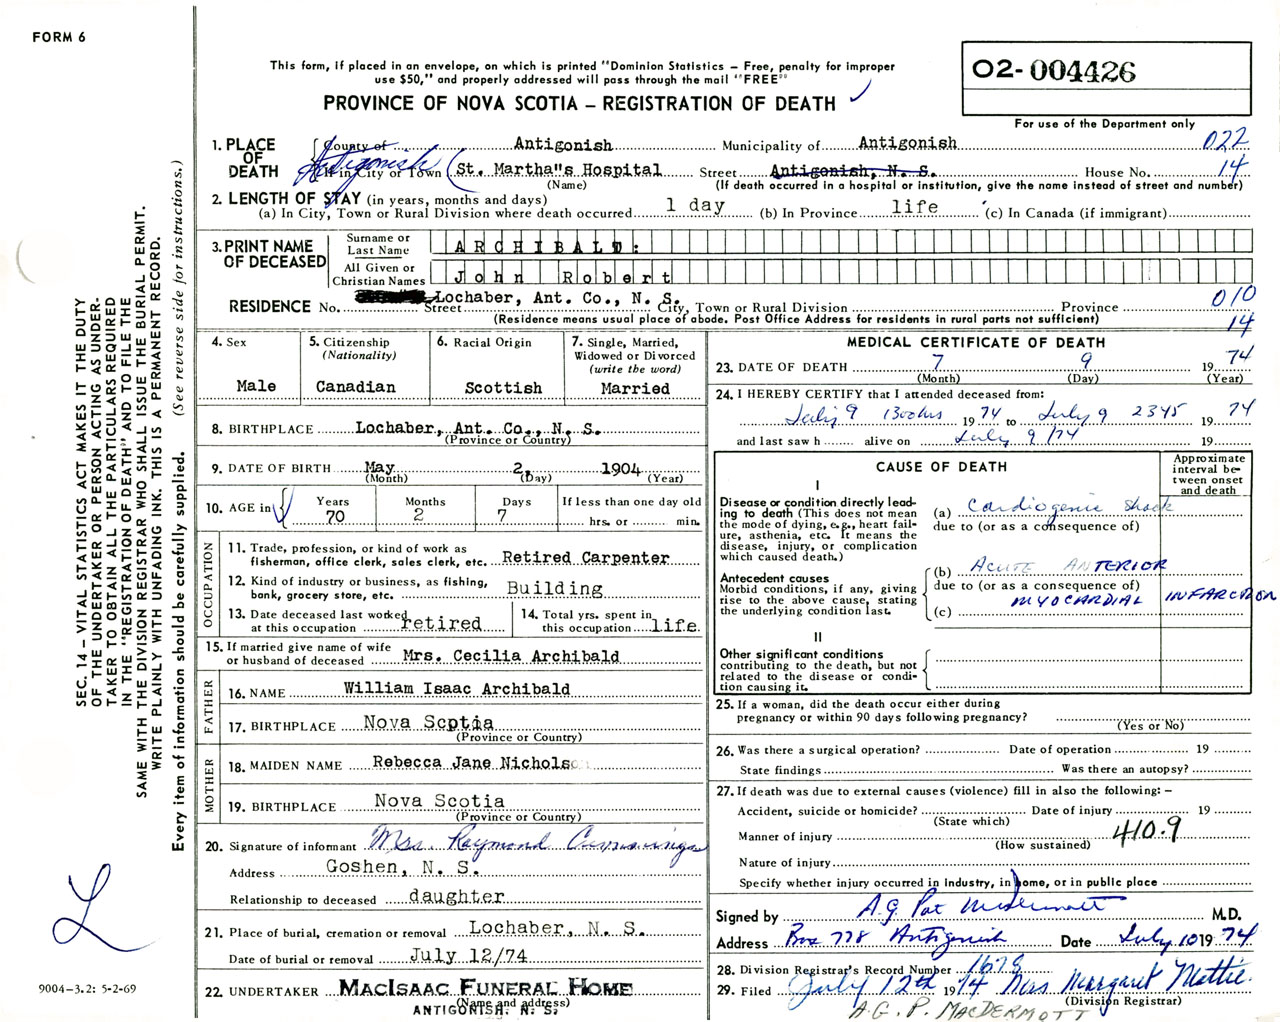 FORM 6
This form, if placed in an envelope, on which is printed "Dominion Statistics – Free, penalty for improper
use $50," and properly addressed will pass through the mail "FREE"
PROVINCE OF NOVA SCOTIA – REGISTRATION OF DEATH
02-004426
For use of the Department only
1. PLACE OF DEATH
County of Antigonish Municipality of Antigonish 022
Antigonish
If in City or Town St. Martha"s Hospital Street Antigonish, N. S. House No. 14
(Name) (If death occurred in a hospital or institution, give the name instead of street and number)
2. LENGTH OF STAY (in years, months and days)
(a) In City, Town or Rural Division where death occurred 1 day (b) In Province life (c) In Canada (if immigrant)
3. PRINT NAME OF DECEASED
Surname or Last Name ARCHIBALD:
All Given or Christian Names John Robert
RESIDENCE No. Street Lochaber, Ant. Co., N. S. City, Town or Rural Division Province 010
(Residence means usual place of abode. Post Office Address for residents in rural parts not sufficient) 14
4. Sex
Male
5. Citizenship
(Nationality)
Canadian
6. Racial Origin
Scottish
7. Single, Married,
Widowed or Divorced
(write the word)
Married
8. BIRTHPLACE Lochaber, Ant. Co., N. S.
(Province or Country)
9. DATE OF BIRTH May 2, 1904
(Month) (Day) (Year)
10. AGE in
Years 70
Months 2
Days 7
If less than one day old
hrs. or min.
OCCUPATION
11. Trade, profession, or kind of work as
fisherman, office clerk, sales clerk, etc. Retired Carpenter
12. Kind of industry or business, as fishing,
bank, grocery store, etc. Building
13. Date deceased last worked
at this occupation retired
14. Total yrs. spent in
this occupation life
15. If married give name of wife
or husband of deceased Mrs. Cecilia Archibald
FATHER
16. NAME William Isaac Archibald
17. BIRTHPLACE Nova Scptia
(Province or Country)
MOTHER
18. MAIDEN NAME Rebecca Jane Nichols
19. BIRTHPLACE Nova Scotia
(Province or Country)
20. Signature of informant Mrs. Raymond Cummings
Address Goshen, N. S.
Relationship to deceased daughter
21. Place of burial, cremation or removal Lochaber, N. S.
Date of burial or removal July 12/74
22. UNDERTAKER MACISAAC FUNERAL HOME
(Name and address)
ANTIGONISH. N. S.
MEDICAL CERTIFICATE OF DEATH
23. DATE OF DEATH 7 9 19 74
(Month) (Day) (Year)
24. I HEREBY CERTIFY that I attended deceased from:
July 9 1300hrs 19 74 to July 9 2345 19 74
and last saw h alive on July 9/74 19
CAUSE OF DEATH
Approximate
interval be-
tween onset
and death
I
Disease or condition directly lead-
ing to death (This does not mean
the mode of dying, e.g., heart fail-
ure, asthenia, etc. It means the
disease, injury, or complication
which caused death.)
(a) Cardiogenic Shock
due to (or as a consequence of)
Antecedent causes
Morbid conditions, if any, giving
rise to the above cause, stating
the underlying condition last.
(b) ACUTE ANTERIOR
due to (or as a consequence of)
(c) MYOCARDIAL INFARCTION
II
Other significant conditions
contributing to the death, but not
related to the disease or condi-
tion causing it.
25. If a woman, did the death occur either during
pregnancy or within 90 days following pregnancy?
(Yes or No)
26. Was there a surgical operation? Date of operation 19
State findings Was there an autopsy?
27. If death was due to external causes (violence) fill in also the following: –
Accident, suicide or homicide? Date of injury 19
(State which)
Manner of injury 410.9
(How sustained)
Nature of injury
Specify whether injury occurred in Industry, in home, or in public place
Signed by A.G. Pat McDermott M.D.
Address Box 778 Antigonish Date July 10 19 74
28. Division Registrar's Record Number 1678
29. Filed July 12th 1974 Mrs Margaret Mattie
(Division Registrar)
A.G.P. MACDERMOTT
SEC. 14 – VITAL STATISTICS ACT MAKES IT THE DUTY
OF THE UNDERTAKER OR PERSON ACTING AS UNDER-
TAKER TO OBTAIN ALL THE PARTICULARS REQUIRED
IN THE "REGISTRATION OF DEATH" AND TO FILE THE
SAME WITH THE DIVISION REGISTRAR WHO SHALL ISSUE THE BURIAL PERMIT.
WRITE PLAINLY WITH UNFADING INK. THIS IS A PERMANENT RECORD.
Every item of information should be carefully supplied. (See reverse side for instructions.)
9004–3.2: 5-2-69